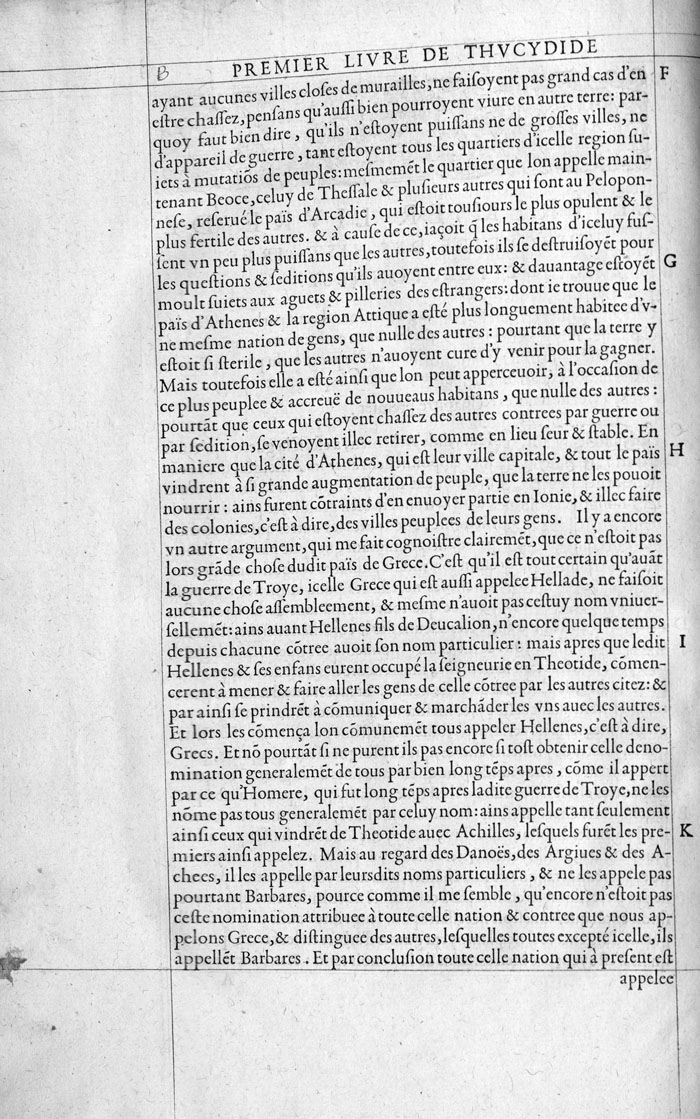 PREMIER LIVRE DE THVCYDIDE
ayant aucunes villes closes de murailles, ne faiſoyent pas grand cas d'en F
eſtre chaſſez, penſans qu'auſſi bien pourroyent viure en autre terre: par-
quoy faut bien dire, qu'ils n'eſtoyent puiſſans ne de groſſes villes, ne
d'appareil de guerre, tant eſtoyent tous les quartiers d'icelle region ſu-
iets à mutatiõs de peuples: meſmemẽt le quartier que lon appelle main-
tenant Beoce, celuy de Theſſale & pluſieurs autres qui ſont au Pelopon-
neſe, reſerué le païs d'Arcadie, qui eſtoit touſiours le plus opulent & le
plus fertile des autres. & à cauſe de ce, iaçoit q̃ les habitans d'iceluy fuſ-
ſent vn peu plus puiſſans que les autres, toutefois ils ſe deſtruiſoyẽt pour
les queſtions & ſeditions qu'ils auoyent entre eux: & dauantage eſtoyẽt G
moult ſuiets aux aguets & pilleries des eſtrangers: dont ie trouue que le
païs d'Athenes & la region Attique a eſté plus longuement habitee d'v-
ne meſme nation de gens, que nulle des autres: pourtant que la terre y
eſtoit ſi ſterile, que les autres n'auoyent cure d'y venir pour la gagner.
Mais toutefois elle a eſté ainſi que lon peut apperceuoir, à l'occaſion de
ce plus peuplee & accreuë de nouueaus habitans, que nulle des autres:
pourtãt que ceux qui eſtoyent chaſſez des autres contrees par guerre ou
par ſedition, ſe venoyent illec retirer, comme en lieu ſeur & ſtable. En
maniere que la cité d'Athenes, qui eſt leur ville capitale, & tout le païs H
vindrent à ſi grande augmentation de peuple, que la terre ne les pouoit
nourrir: ains furent cõtraints d'en enuoyer partie en Ionie, & illec faire
des colonies, c'eſt à dire, des villes peuplees de leurs gens. Il y a encore
vn autre argument, qui me fait cognoiſtre clairemẽt, que ce n'eſtoit pas
lors grãde choſe dudit païs de Grece. C'eſt qu'il eſt tout certain qu'auãt
la guerre de Troye, icelle Grece qui eſt auſſi appelee Hellade, ne faiſoit
aucune choſe aſſembleement, & meſme n'auoit pas ceſtuy nom vniuer-
ſellemẽt: ains auant Hellenes fils de Deucalion, n'encore quelque temps
depuis chacune cõtree auoit ſon nom particulier: mais apres que ledit I
Hellenes & ſes enfans eurent occupé la ſeigneurie en Theotide, cõmen-
cerent à mener & faire aller les gens de celle cõtree par les autres citez: &
par ainſi ſe prindrẽt à cõmuniquer & marchãder les vns auec les autres.
Et lors les cõmença lon cõmunemẽt tous appeler Hellenes, c'eſt à dire,
Grecs. Et nõ pourtãt ſi ne purent ils pas encore ſi toſt obtenir celle deno-
mination generalemẽt de tous par bien long tẽps apres, cõme il appert
par ce qu'Homere, qui fut long tẽps apres ladite guerre de Troye, ne les
nõme pas tous generalemẽt par celuy nom: ains appelle tant ſeulement
ainſi ceux qui vindrẽt de Theotide auec Achilles, leſquels furẽt les pre- K
miers ainſi appelez. Mais au regard des Danoës, des Argiues & des A-
chees, il les appelle par leurſdits noms particuliers, & ne les appele pas
pourtant Barbares, pource comme il me ſemble, qu'encore n'eſtoit pas
ceſte nomination attribuee à toute celle nation & contree que nous ap-
pelons Grece, & diſtinguee des autres, leſquelles toutes excepté icelle, ils
appellẽt Barbares. Et par concluſion toute celle nation qui à preſent eſt
appelee